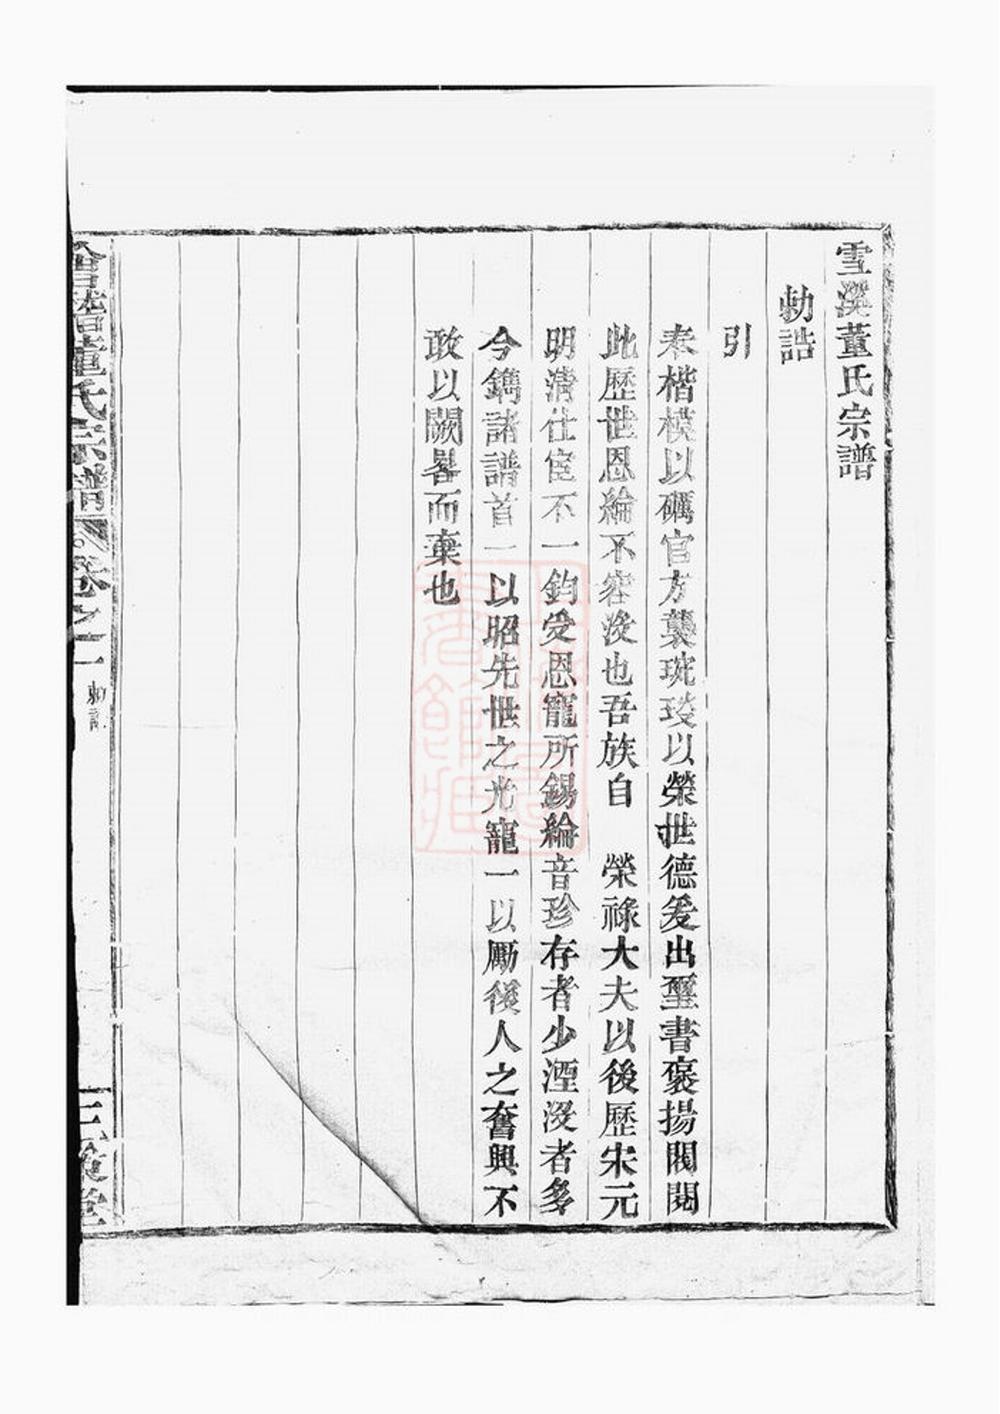 雪溪董氏宗譜
勅誥
引
奉楷模以礪官方襲琬琰以榮世德爰出璽書褒揚閥閱
此歷世恩綸不容沒也吾族自 榮祿大夫以後歷宋元
明清仕宦不一鈞受恩寵所錫綸音珍存者少湮沒者多
今鐫諸譜首一以昭先世之光寵一以勵後人之奮興不
敢以闕畧而棄也
會稽董氏宗譜 卷之一 勅誥 三策堂